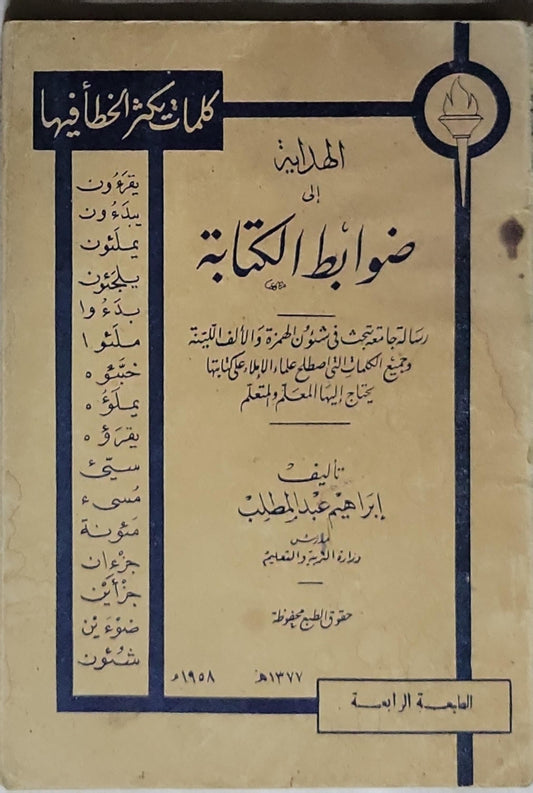 كلمات يكثر الخطأ فيها
الهداية
إلى
ضوابط الكتابة
رسالة جامعة تبحث في شئون الهمزة والألف اللينة
وجميع الكلمات التي اصطلح علماء الإملاء على كتابتها
يحتاج إليها المعلم والمتعلم
تأليف
إبراهيم عبد المطلب
مدرس
وزارة التربية والتعليم
حقوق الطبع محفوظة
١٣٧٧ هـ ١٩٥٨ م
الطبعة الرابعة
يقرءون
يبدءون
يملئون
يلجئون
بدءوا
ملئوا
خبئوه
يملؤه
يقرؤه
سيّئ
مُسيء
مئونة
جزءان
جزأين
ضوءين
شئون